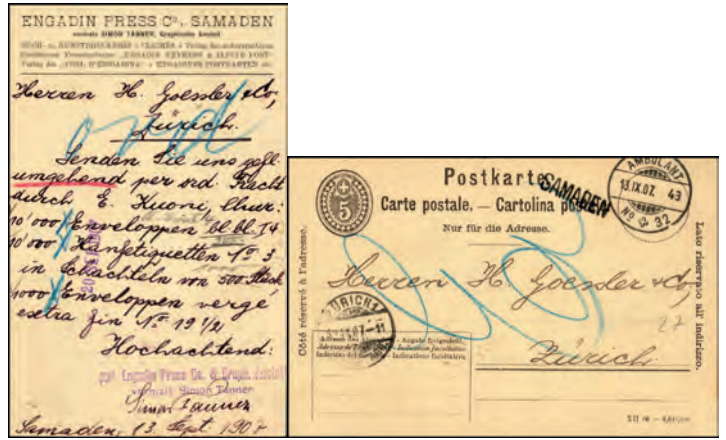 ENGADIN PRESS Co., SAMADEN
vormals SIMON TANNER, Graphische Anstalt
BUCH- u. KUNSTDRUCKEREI
ENGADIN EXPRESS & ALPINE POST
ENGADINER POSTKARTEN etc.
Herren H. Goessler & Co,
Zürich.
Senden Sie uns gefl.
umgehend per ord. Fracht
durch E. Kuoni, Chur:
10'000 Enveloppen bl. bl. T4
10'000 Hanfetiquetten No 3
in Schachteln von 500 Stück
1000 Enveloppen vergé
extra fin No 19 1/2
Hochachtend:
ppa. Engadin Press Co. & Graph. Anstalt
vormals Simon Tanner
Simon Tanner
Samaden, 13. Sept. 1907
Postkarte.
Carte postale. — Cartolina postale.
Nur für die Adresse.
SAMADEN
AMBULANT
13.IX.07. 43
No 32
5
Côté réservé à l'adresse.
Lato riservato all' indirizzo.
Herren H. Goessler & Co,
27
Zürich.
ZÜRICH 1
IX.07-11